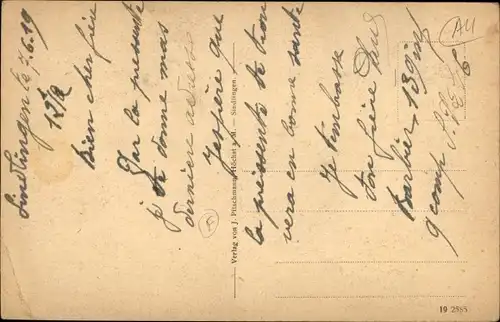 Sindlingen le 7.6.19
Bien cher frère
Par la présente
je te donne mas
derniere adresse
Jespère que
la presente te trou
vera en bonne santé
Je t'embrasse
ton frère
Barbier 139 inf
9 comp S.P.
Verlag von J. Pitschmann, Höchst a. M. - Sindlingen.
19 2585
All